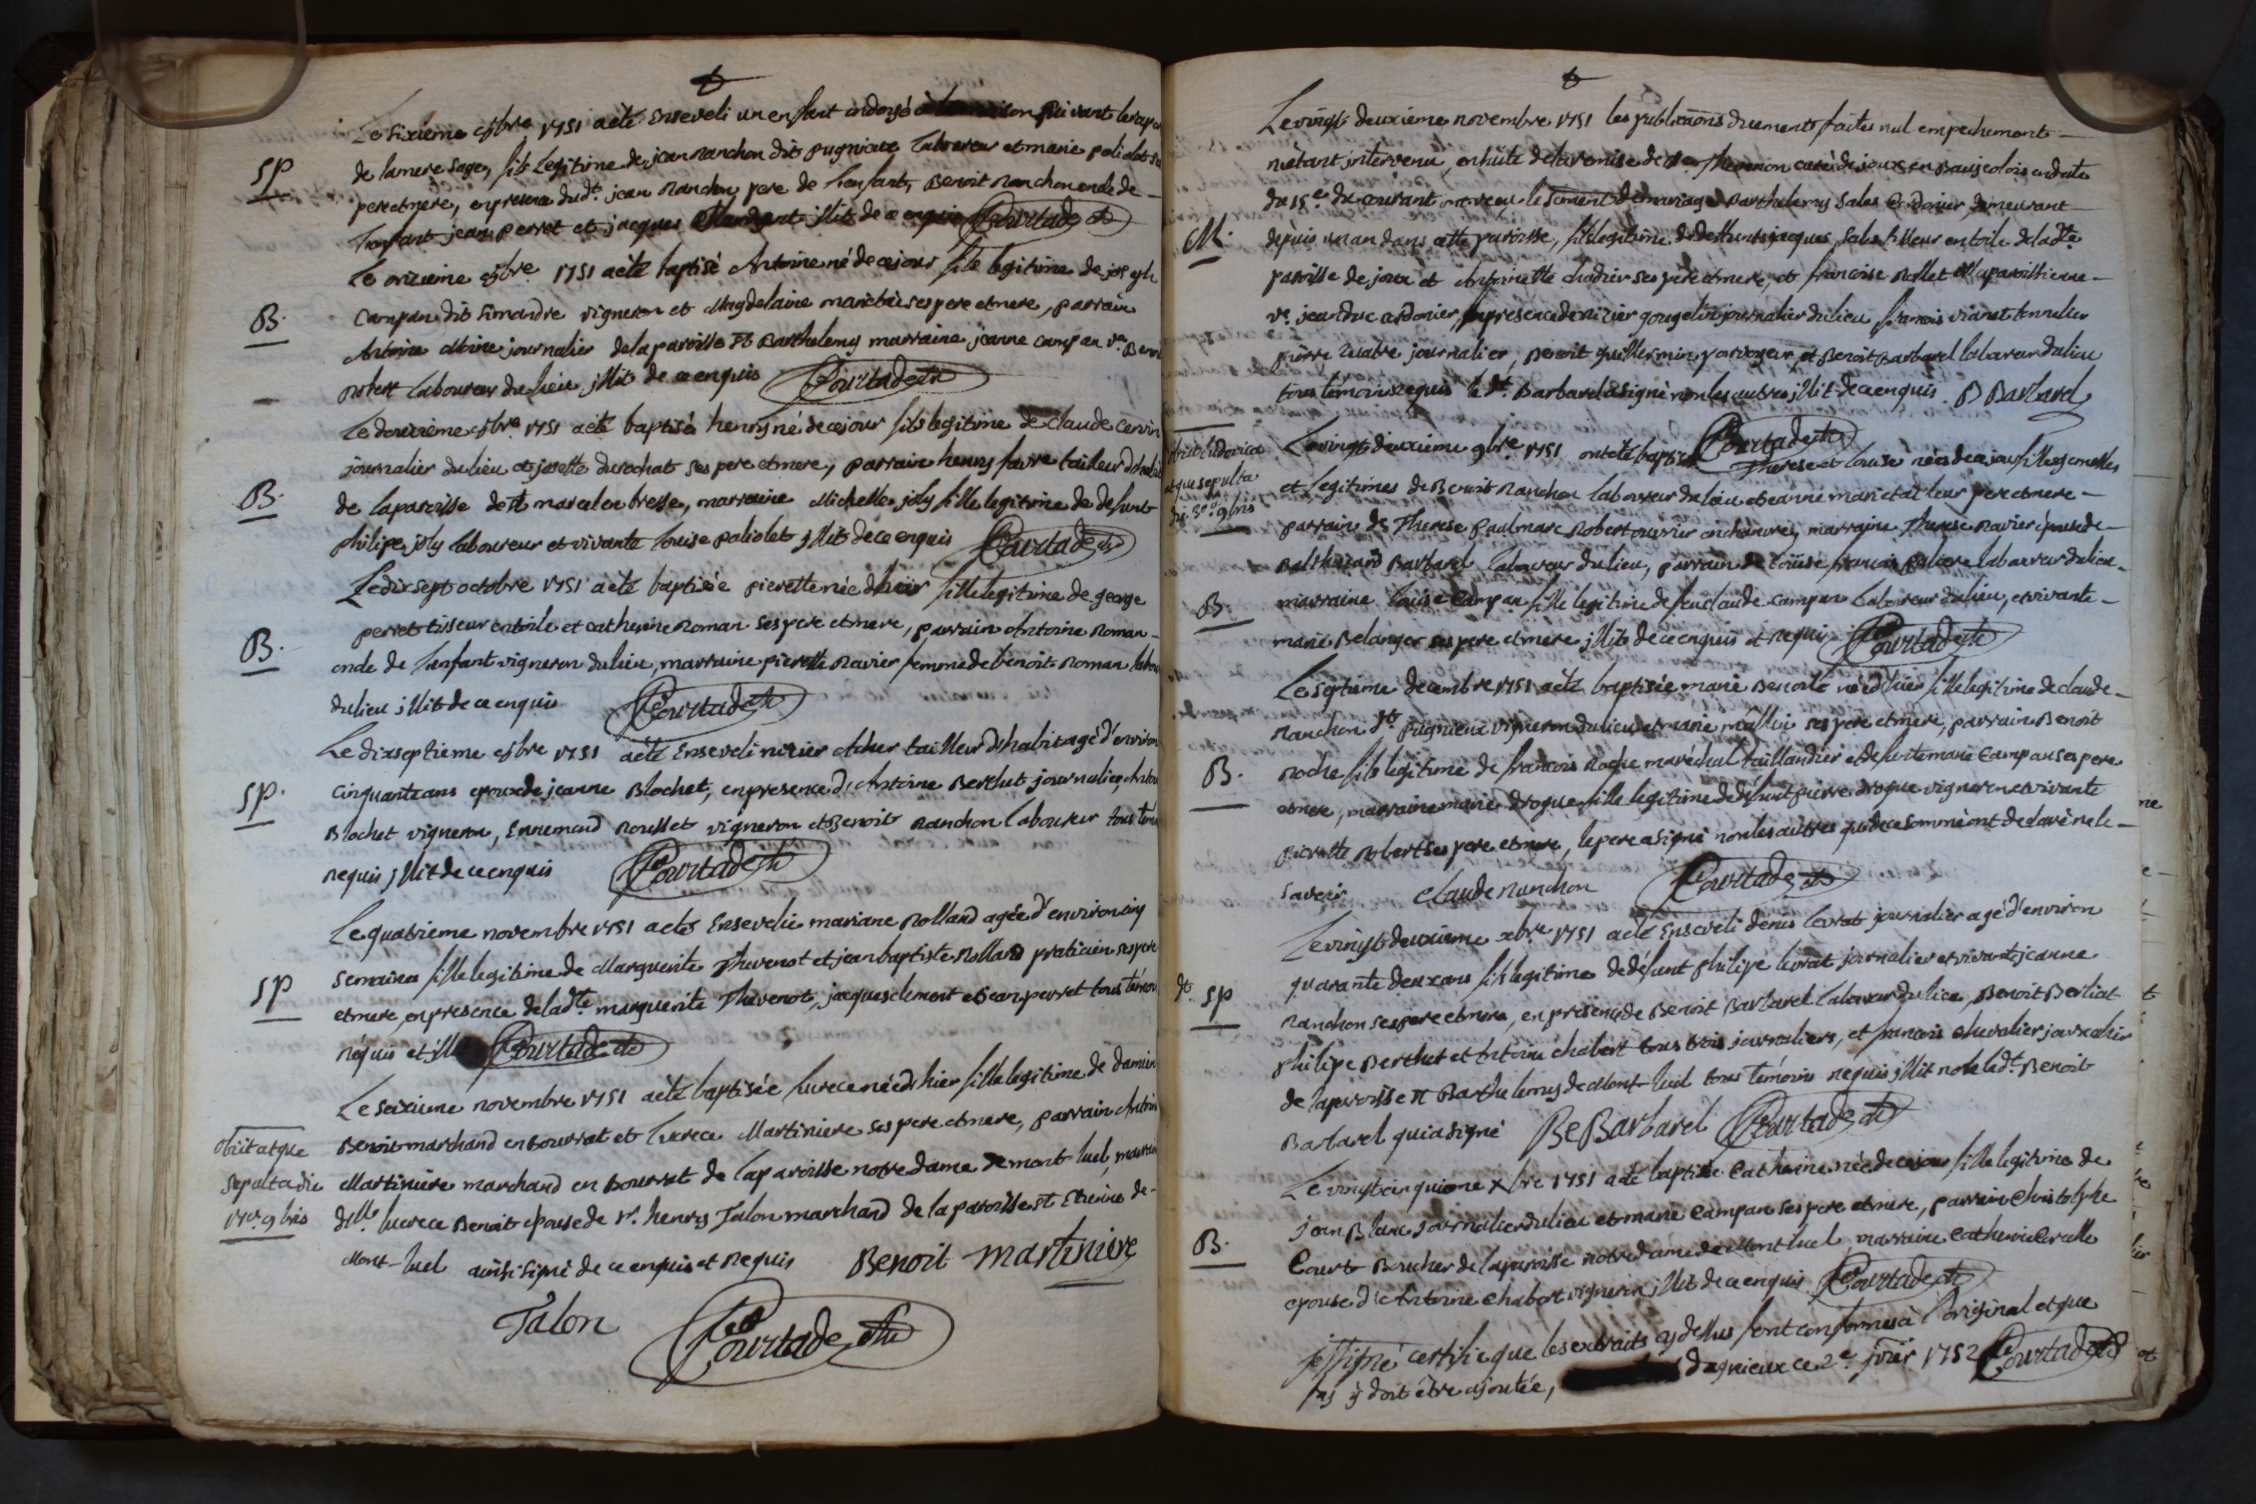 Le Sixieme 8bre 1751 a eté Enseveli un enfant ondoyé suivant le rapor
SP
de la mere sage, fils Legitime de jean nanchon dit pugnieux Laboureur et marie paliolet ses
pere et mere, en presence du dt. jean nanchon pere de l'enfant, Benoit nanchon oncle de
l'enfant jean perret et jacques illit de ce enquis Courtade ctre
Le onzieme 8bre 1751 a eté baptisé Antoine né de ce jour fils legitime de joseph
B.
Campan dit Simandre vigneron et Magdelaine marietéis ses pere et mere, parrain
Antoine Moine journalier de la paroisse St Barthelemy marraine jeanne Campan ve. Benoi
robert Laboureur du lieu, illit de ce enquis Courtade ctre
Le douzieme 8bre 1751 a eté baptisé henry né de ce jour fils legitime de Claude Cervin
journalier du lieu et josette durochat ses pere et mere, parrain henry favre tailleur d'habits
B.
de la paroisse de St marcel en bresse, marraine Michelle joly fille legitime de defunt
philipe joly laboureur et vivante louise paliolet illit de ce enquis Courtade ctre
Le dix sept octobre 1751 a eté baptisée pierrette née d'hier fille legitime de george
perret tisseur en toile et catherine Roman ses pere et mere, parrain Antoine Roman
B.
oncle de l'enfant vigneron du lieu, marraine pierrette navier femme de benoit Roman labou
du lieu illit de ce enquis Courtade ctre
Le dixseptieme 8bre 1751 a eté Enseveli nizier tailleur d'habit agé d'environ
SP.
Cinquante ans epoux de jeanne Blochet, en presence d'Antoine Berthet journalier, Antoi
Blochet vigneron, Ennemond Rousset vigneron et Benoit Nanchon laboureur tous temo
requis illit de ce enquis Courtade ctre
Le quatrieme novembre 1751 a eté Ensevelie mariane Rolland agée d'environ cinq
SP
Semaines fille legitime de Marguerite Thevenot et jean baptiste Rolland praticien ses pere
et mere, en presence de la dte. marguerite Thevenot, jacques clement et jean perret tous témoin
réquis et ill Courtade ctre
Le Seizieme novembre 1751 a eté baptisée lucrece née d'hier fille legitime de damien
obiit atque
Benoit marchand en Bourrat et lucrece Martiniere ses pere et mere, parrain Antoin
Sepulta die
Martiniere marchand en Bourrat de la paroisse notre dame de mont luel, marrain
9bris
dlle. lucrece Benoit epouse de sr. henry Talon marchand de la paroisse St Etienne de
Mont-luel ainsi signé de ce enquis et requis Benoit Martiniere
Talon Courtade ctre
Le vingt deuxieme novembre 1751 les publications duement faites nul empechement
n'étant intervenu, ensuite de la remise de sr. Thevenon curé de joux en Baujeolois en date
du 15e du courant ont reçu le Sacrement de mariage Barthelemy Sales Cordonier demeurant
M.
depuis un an dans cette paroisse, fils legitime de deffunts jacques Sales tisseur en toile de la dte
paroisse de joux et Antoinette chadier ses pere et mere, et francoise Rollet ma paroissienne
ve. jean duc cordonier, en presence de nizier gougelin journalier du lieu, francois vianet tonnelier
pierre journalier, Benoit guillermin, et Benoit Barbarel laboureur du lieu
tous témoins requis le dt. Barbarel a signé non les autres illit de ce enquis B Barbarel
Courtade ctre
Le vingt deuxieme 9bre 1751 ont eté baptisées Therese et louise nées de ce jour filles jumelles
obiit ludovica
atque sepulta
die 30a 9bris
et legitimes de Benoit nanchon laboureur du lieu et jeanne marietat leur pere et mere
parrain de Therese paul marc Robert ouvrier en chanvre, marraine Therese navier épouse de
Balthazard Barbarel laboureur du lieu, parrain de Louise francois paliere laboureur du lieu
B.
marraine louise Campan fille legitime de feu claude campan laboureur du lieu, et vivante
marie Belanger ses pere et mere illit de ce enquis et requis Courtade ctre
Le septieme decembre 1751 a eté baptisée marie Benoite née d'hier fille legitime de claude
nanchon dt. pugnieux vigneron du lieu et marie mallin ses pere et mere, parrain Benoit
B.
Roche fils legitime de francois Roche maréchal taillandier et defunte marie Campan ses pere
et mere, marraine marie drogue fille legitime de defunt pierre drogue vigneron et vivante
pierrette Robert ses pere et mere, le pere a signé non les autres qui de ce sommé ont declaré ne le
savoir Claude nanchon Courtade ctre
Le vingt deuxieme xbre 1751 a eté Enseveli denis levrat journalier agé d'environ
quarante deux ans fils legitime de défunt philipe levrat journalier et vivante jeanne
SP
nanchon ses pere et mere, en presence de Benoit Barbarel laboureur du lieu, Benoit Berliat
philipe Berthet et Antoine chabert tous trois journaliers, et francois chevalier journalier
de la paroisse St Barthelemy de Mont-luel tous témoins requis illit non le dt. Benoit
Barbarel qui a signé Be Barbarel Courtade ctre
Le vingt cinquieme xbre 1751 a eté baptisée Catherine née de ce jour fille legitime de
jean Blanc journalier du lieu et marie Campan ses pere et mere, parrain Christophe
B.
Court Boucher de la paroisse notre dame de Mont luel marraine Catherine Cervelle
epouse d'Antoine Chabert vigneron illit de ce enquis Courtade ctre
je soussigné certifie que les extraits cy dessus sont conformes à l'original et que
foy y doit être ajoutée, dagnieux ce 2e jvier 1752 Courtade ctre